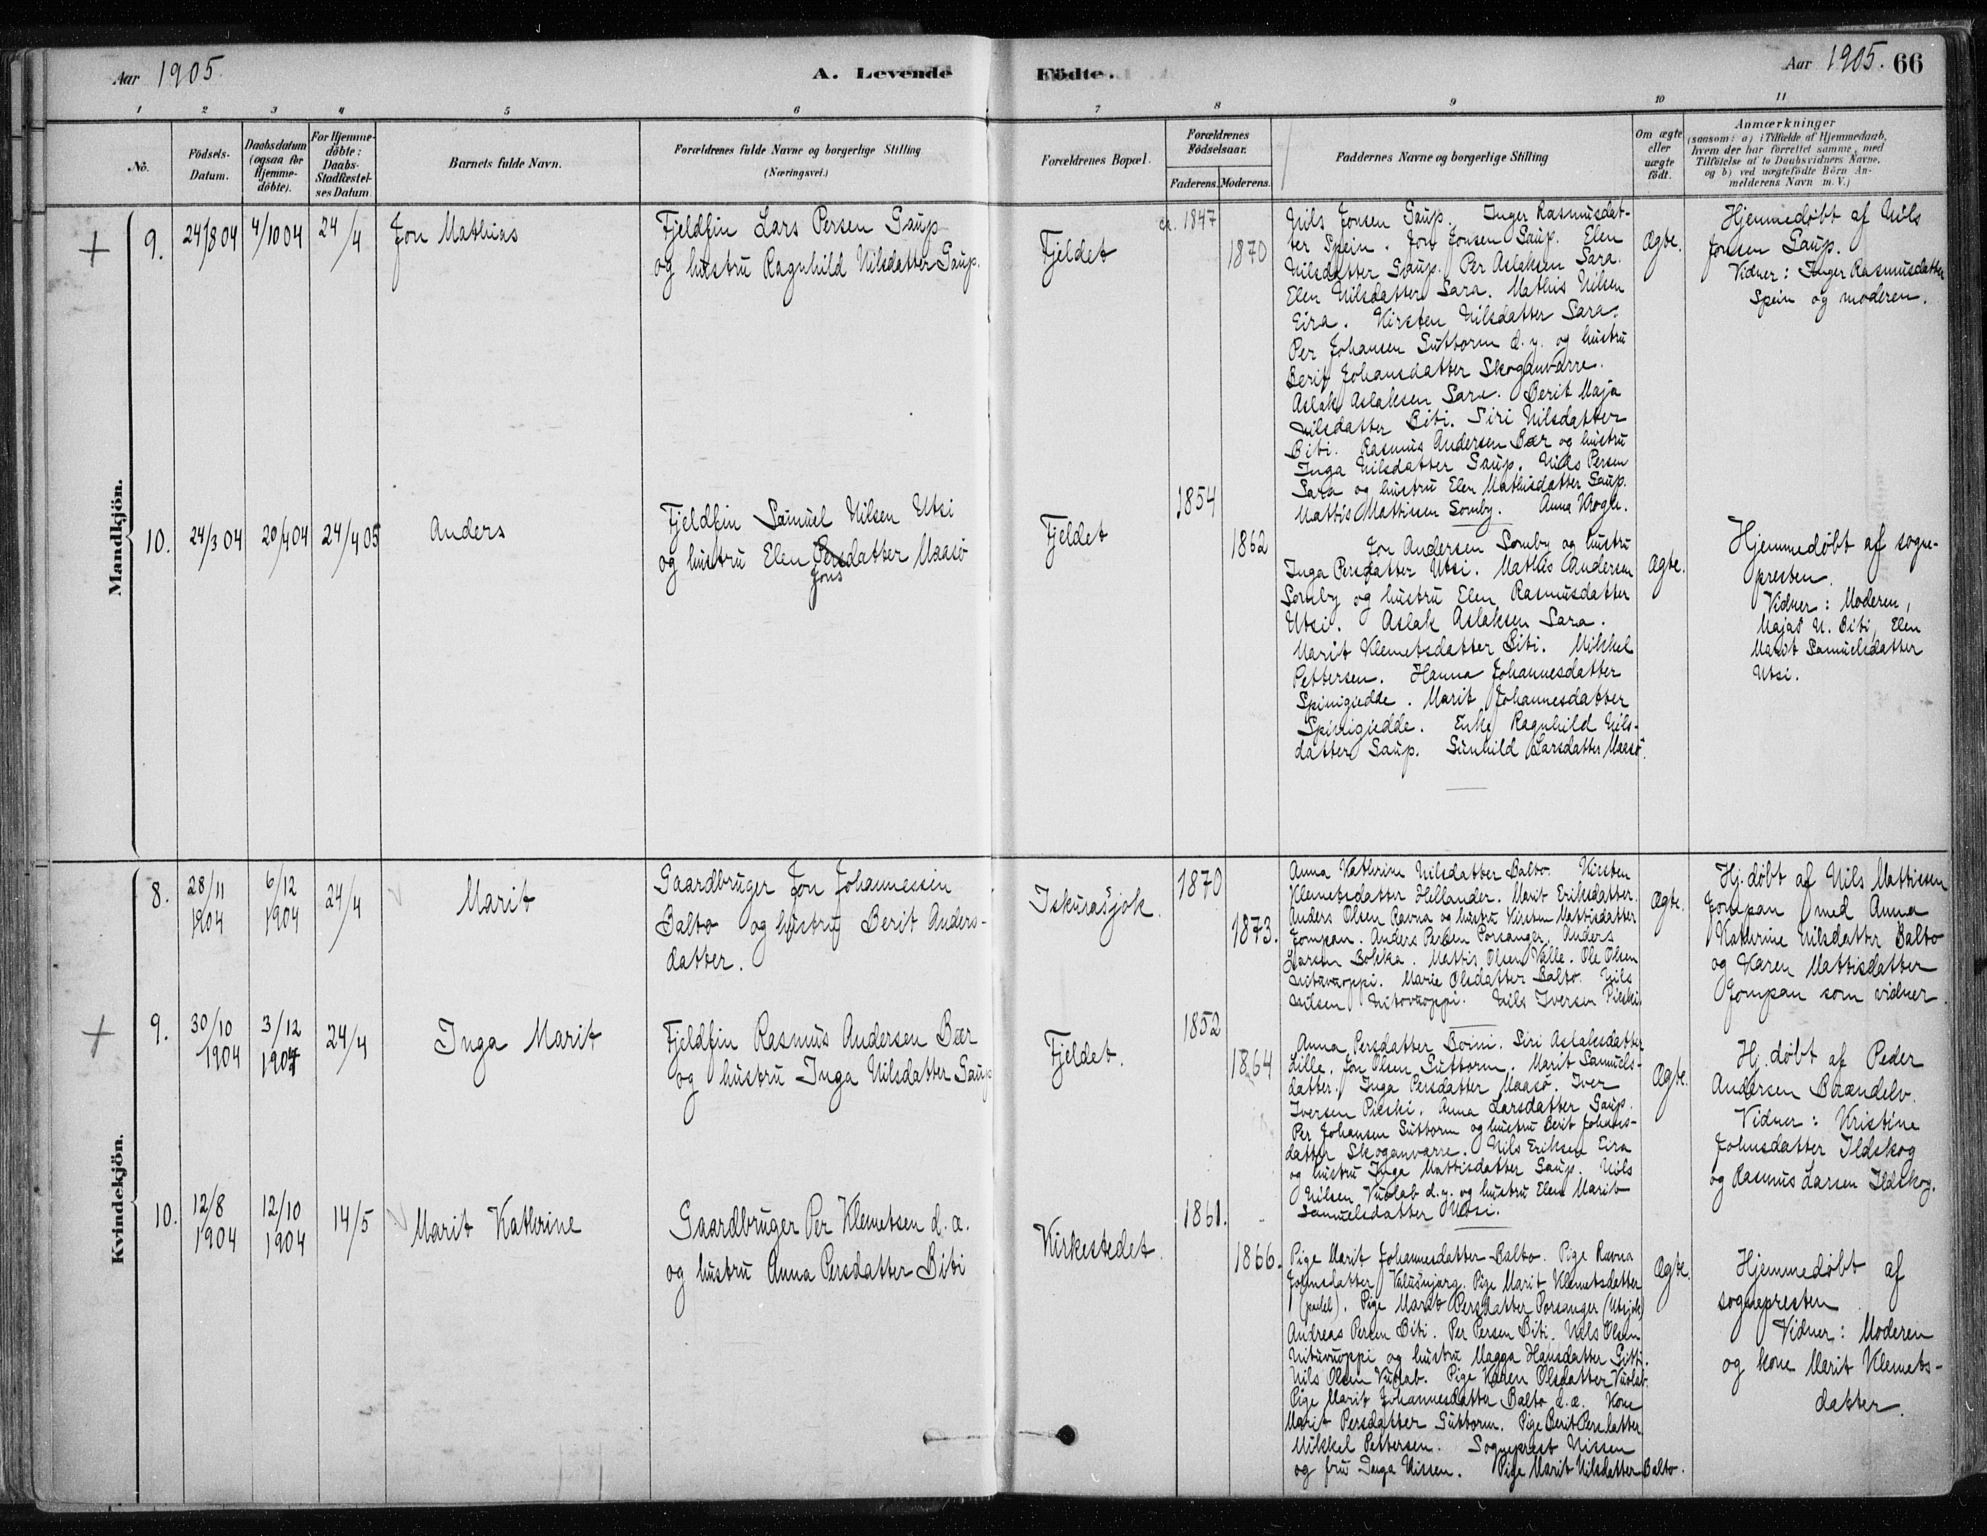 Aar 1905.
A. Levende Födte.
Aar 1905. 66
1 2 3 4 5 6 7 8 9 10 11
No.
Födsels-
Datum.
Daabsdatum
(ogsaa for
Hjemme-
döbte).
For Hjemme-
döbte:
Daabs-
Stadfæstel-
ses Datum
Barnets fulde Navn.
Forældrenes fulde Navne og borgerlige Stilling
(Næringsvei.)
Forældrenes Bopæl.
Forældrenes
Födselsaar.
Faderens. Moderens.
Faddernes Navne og borgerlige Stilling
Om ægte
eller
uægte
födt.
Anmærkninger
(saasom: a) i Tilfælde af Hjemmedaab,
hvem der har forrettet samme, med
Tilföielse af to Daabsvidners Navne,
og b) ved uægtefödte Börn An-
melderens Navn m. V.)
Mandkjön.
+ 9. 24/8 04 4/10 04 24/4 Jon Mathias
Fjeldfin Lars Persen Gaup
og hustru Ragnhild Nilsdatter Gaup.
Fjeldet
ca. 1847
1870
Nils Jonsen Gaup. Inger Rasmusdat-
ter Spein. Jon Jonsen Gaup. Elen
Nilsdatter Gaup. Per Aslaksen Sara.
Elen Nilsdatter Sara. Mathis Nilsen
Eira. Kirsten Nilsdatter Sara.
Per Johansen Guttorm d.y. og hustru
Berit Johansdatter Skoganvarre.
Aslak Aslaksen Sara. Berit Maja
Nilsdatter Biti. Siri Nilsdatter
Biti. Rasmus Andersen Bær og hustru
Inga Nilsdatter Gaup. Nils Persen
Sara og hustru Elen Mathisdatter Gaup.
Mattis Mattisen Somby. Anna Krogh.
Ægte.
Hjemmedøbt af Nils
Jonsen Gaup.
Vidner: Inger Rasmusdatter
Spein og moderen.
10. 24/3 04 20/4 04 24/4 05 Anders
Fjeldfin Samuel Nilsen Utsi
og hustru Elen Persdatter Maasø
Jons
Fjeldet
1854
1862
Jon Andersen Somby og hustru
Inga Persdatter Utsi. Mathis Andersen
Somby og hustru Elen Rasmusdatter
Utsi. Aslak Aslaksen Sara.
Marit Klemetsdatter Biti. Mikkel
Pettersen. Hanna Johannesdatter
Spinigiedde. Marit Johannesdatter
Spinigiedde. Enke Ragnhild Nils-
datter Gaup. Gunhild Larsdatter Maasø.
Ægte.
Hjemmedøbt af sogne-
presten.
Vidner: Moderen,
N. Biti, Elen
Marit Samuelsdatter
Utsi.
Kvindekjön.
8. 28/11 1904 6/12 1904 24/4 Marit
Gaardbruger Jon Johannessen
Balto og hustru Berit Anders-
datter.
Iskurasjok.
1870
1873.
Anna Kathrine Nilsdatter Balto. Kirsten
Klemetsdatter Hellander. Marit Eriksdatter.
Anders Olsen Ravna og hustru Kirsten Mattisdatter
Jompan. Anders Persen Porsanger. Anders
Larsen Bohka. Mattis Olsen Valle. Ole Olsen
Nituvuoppi. Marie Olsdatter Balto. Nils
Nilsen Nitovuoppi. Nils Iversen Pieski.
Ægte.
Hj. døbt af Nils Mattisen
Jompan med Anna
Kathrine Nilsdatter Balto
og Karen Mattisdatter
Jompan som vidner.
+ 9. 30/10 1904 3/12 1904 24/4 Inga Marit
Fjeldfin Rasmus Andersen Bær
og hustru Inga Nilsdatter Gaup
Fjeldet.
1852
1864
Anna Persdatter Boini. Siri Aslaksdatter
Lille. Jon Olsen Guttorm. Marit Samuels-
datter. Inga Persdatter Maasø. Iver
Iversen Pieski. Anna Larsdatter Gaup.
Per Johansen Guttorm og hustru Berit Johans-
datter Skoganvarre. Nils Eriksen Eira
og hustru Inga Mattisdatter Gaup. Nils
Nilsen Vuolab d.y. og hustru Elen Marit
Samuelsdatter Utsi.
Ægte.
Hj. døbt af Peder
Andersen Brændelv.
Vidner: Kristine
Johnsdatter Ildskog
og Rasmus Larsen Ildskog.
10. 12/8 1904 12/10 1904 14/5 Marit Kathrine
Gaardbruger Per Klemetsen d.æ.
og hustru Anna Persdatter Biti
Kirkestedet.
1861.
1866.
Pige Marit Johannesdatter Balto. Pige Ravna
Johnsdatter. Pige Marit Klemetsdatter
Pige Marit Persdatter Porsanger (Utsjok)
Andreas Persen Biti. Per Persen Biti. Nils Olsen
Nituvuoppi og hustru Magga Hansdatter Gitti.
Nils Olsen Vuolab. Pige Karen Olsdatter Vuolab.
Pige Marit Johannesdatter Balto d.æ. Kone
Marit Persdatter Guttorm. Pige Berit Persdatter
Mikkel Pettersen. Sogneprest Nissen
og fru Inga Nissen. Pige Marit Nilsdatter Balto.
Ægte.
Hjemmedøbt af
sognepresten
Vidner: Moderen
og kone Marit Klemets-
datter.